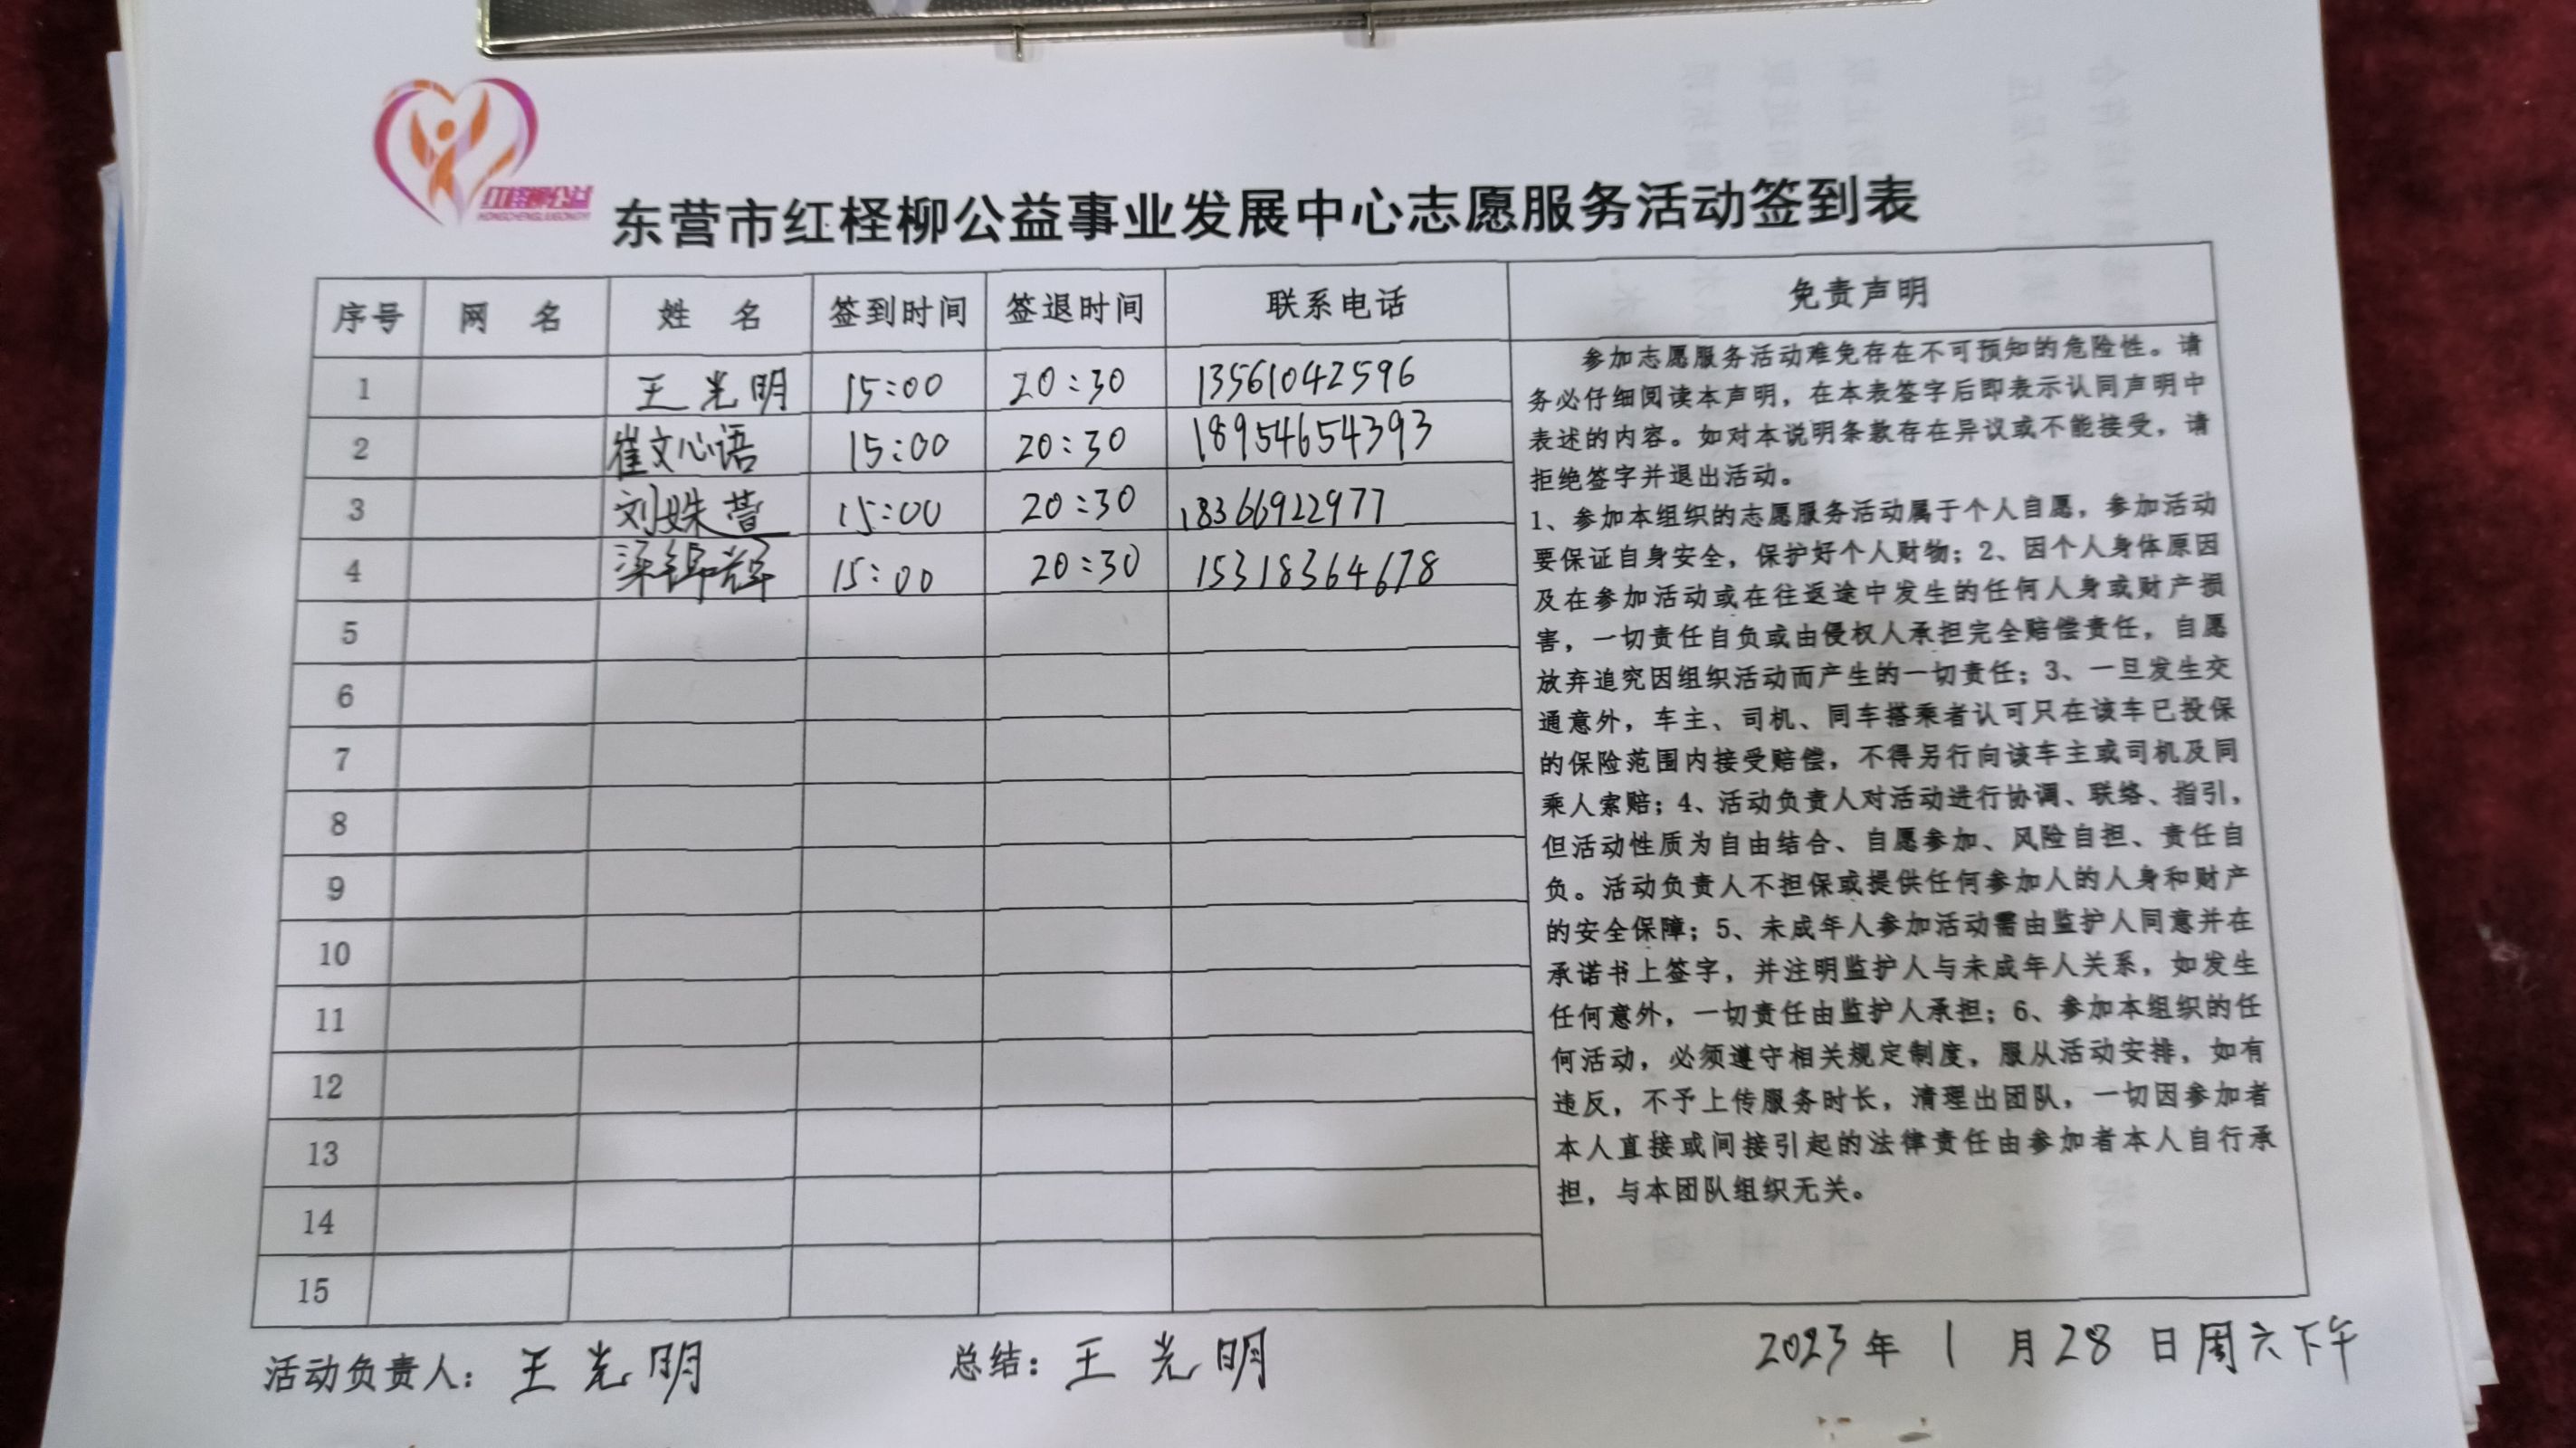 红柽柳公益
HONGCHENGLIUGONGYI
东营市红柽柳公益事业发展中心志愿服务活动签到表
序号 网 名 姓 名 签到时间 签退时间 联系电话 免责声明
1 王光明 15:00 20:30 13561042596
2 崔文心语 15:00 20:30 18954654393
3 刘姝萱 15:00 20:30 18366922977
4 梁锦辉 15:00 20:30 15318364678
5
6
7
8
9
10
11
12
13
14
15
参加志愿服务活动难免存在不可预知的危险性。请
务必仔细阅读本声明，在本表签字后即表示认同声明中
表述的内容。如对本说明条款存在异议或不能接受，请
拒绝签字并退出活动。
1、参加本组织的志愿服务活动属于个人自愿，参加活动
要保证自身安全，保护好个人财物；2、因个人身体原因
及在参加活动或在往返途中发生的任何人身或财产损
害，一切责任自负或由侵权人承担完全赔偿责任，自愿
放弃追究因组织活动而产生的一切责任；3、一旦发生交
通意外，车主、司机、同车搭乘者认可只在该车已投保
的保险范围内接受赔偿，不得另行向该车主或司机及同
乘人索赔；4、活动负责人对活动进行协调、联络、指引，
但活动性质为自由结合、自愿参加、风险自担、责任自
负。活动负责人不担保或提供任何参加人的人身和财产
的安全保障；5、未成年人参加活动需由监护人同意并在
承诺书上签字，并注明监护人与未成年人关系，如发生
任何意外，一切责任由监护人承担；6、参加本组织的任
何活动，必须遵守相关规定制度，服从活动安排，如有
违反，不予上传服务时长，清理出团队，一切因参加者
本人直接或间接引起的法律责任由参加者本人自行承
担，与本团队组织无关。
活动负责人：王光明 总结：王光明 2023年1月28日周六下午